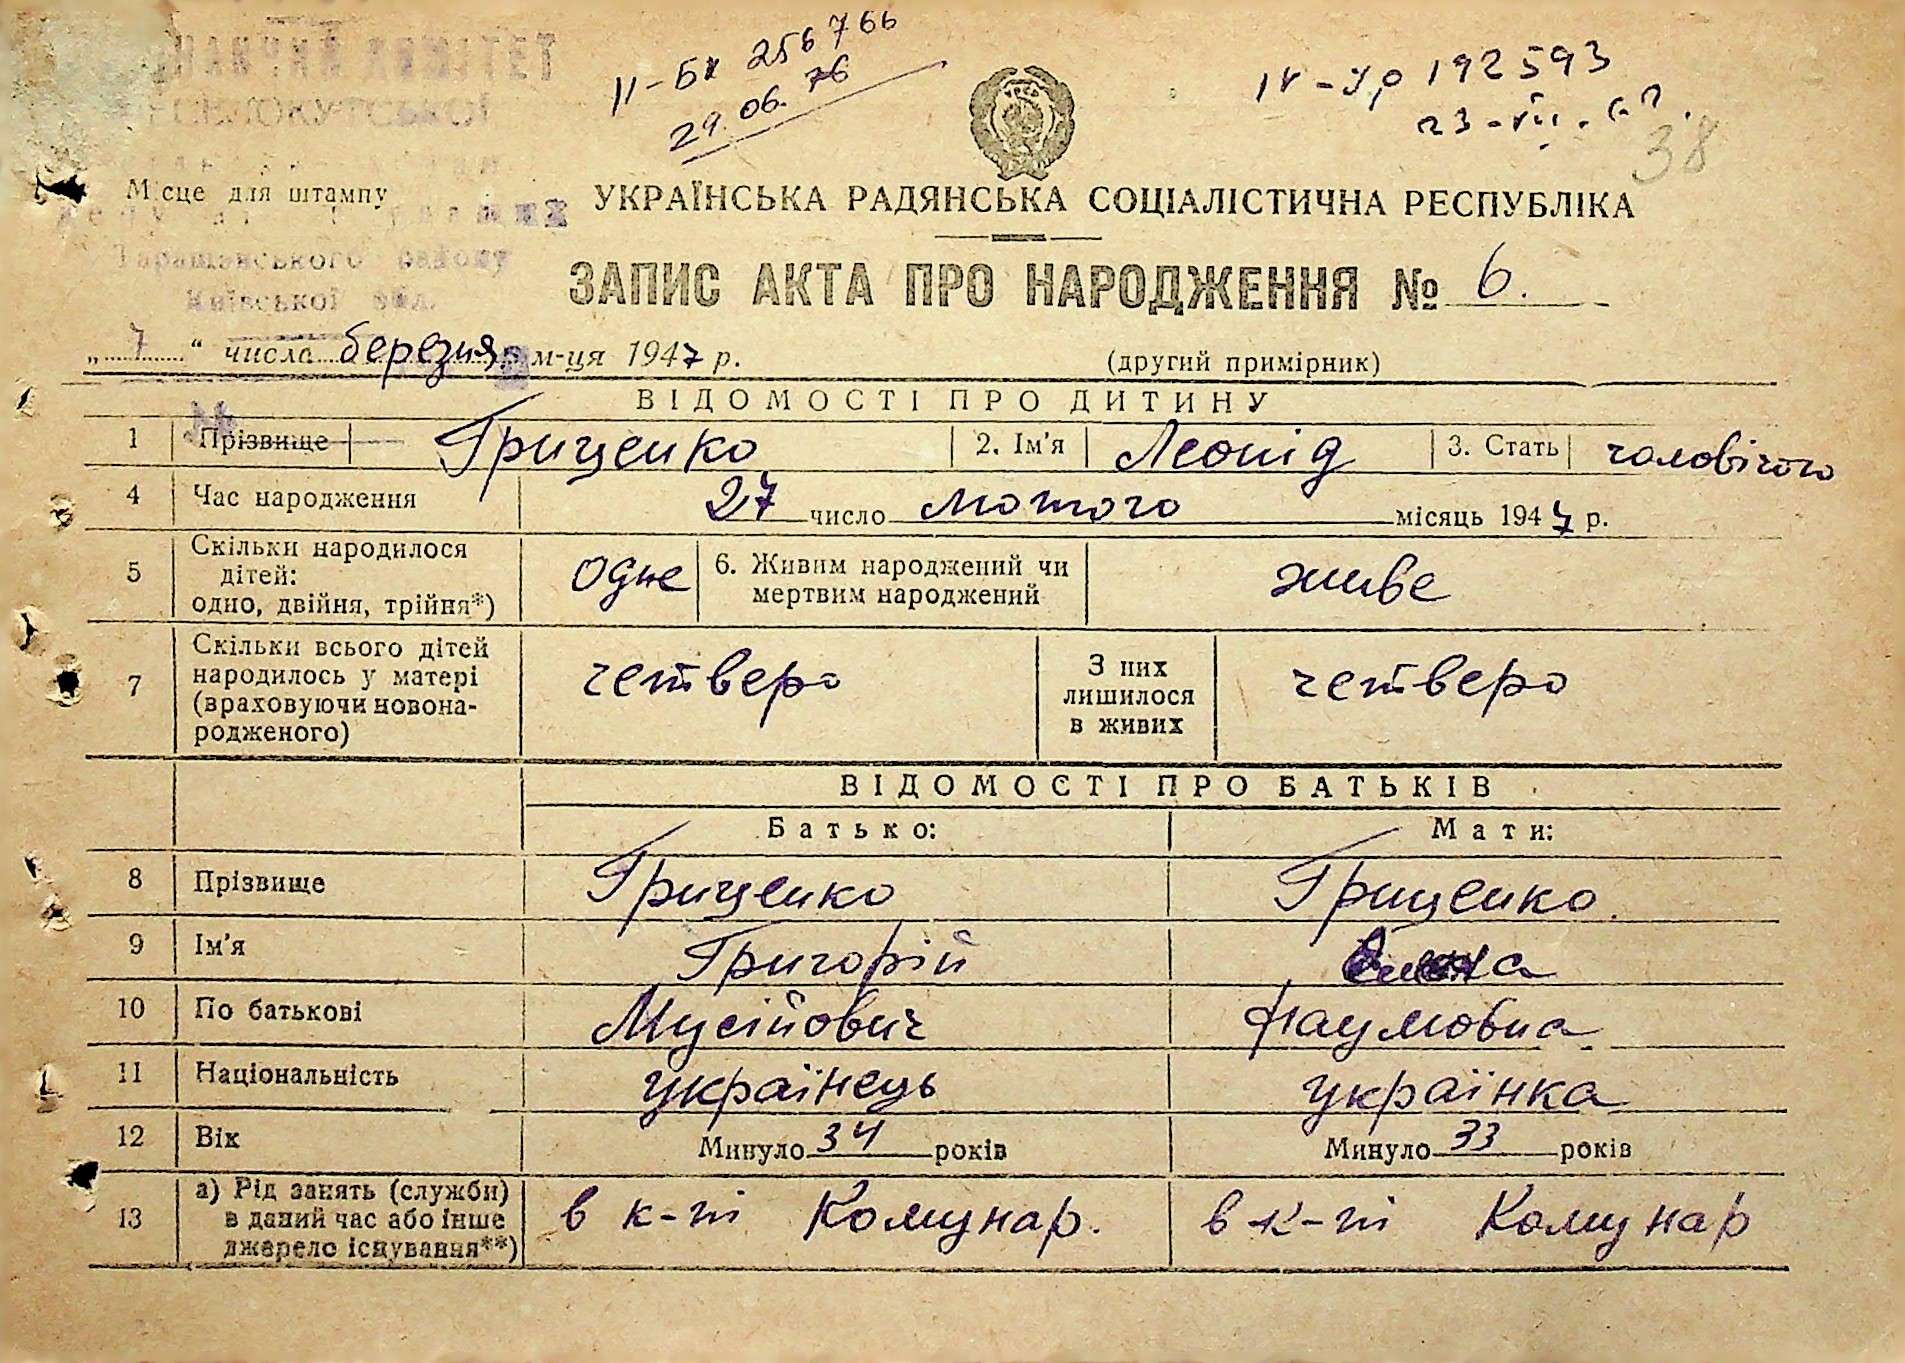 II-БК 256766
29.06.76
IV-УР 192593
38
Місце для штампу
УКРАЇНСЬКА РАДЯНСЬКА СОЦІАЛІСТИЧНА РЕСПУБЛІКА
Таращанського району
Київської обл.
ЗАПИС АКТА ПРО НАРОДЖЕННЯ № 6.
„7“ числа березня м-ця 1947 р.
(другий примірник)
ВІДОМОСТІ ПРО ДИТИНУ
1 Прізвище Гриценко 2. Ім'я Леонід 3. Стать чоловічого
4 Час народження 27 число лютого місяць 1947 р.
5 Скільки народилося дітей: одно, двійня, трійня*) одне 6. Живим народжений чи мертвим народжений живе
7 Скільки всього дітей народилось у матері (враховуючи новонародженого) четверо З них лишилося в живих четверо
ВІДОМОСТІ ПРО БАТЬКІВ
Батько: Мати:
8 Прізвище Гриценко Гриценко
9 Ім'я Григорій
10 По батькові Мусійович Наумовна
11 Національність українець українка
12 Вік Минуло 34 років Минуло 33 років
13 а) Рід занять (служби) в даний час або інше джерело існування**) в к-пі Комунар. в к-пі Комунар